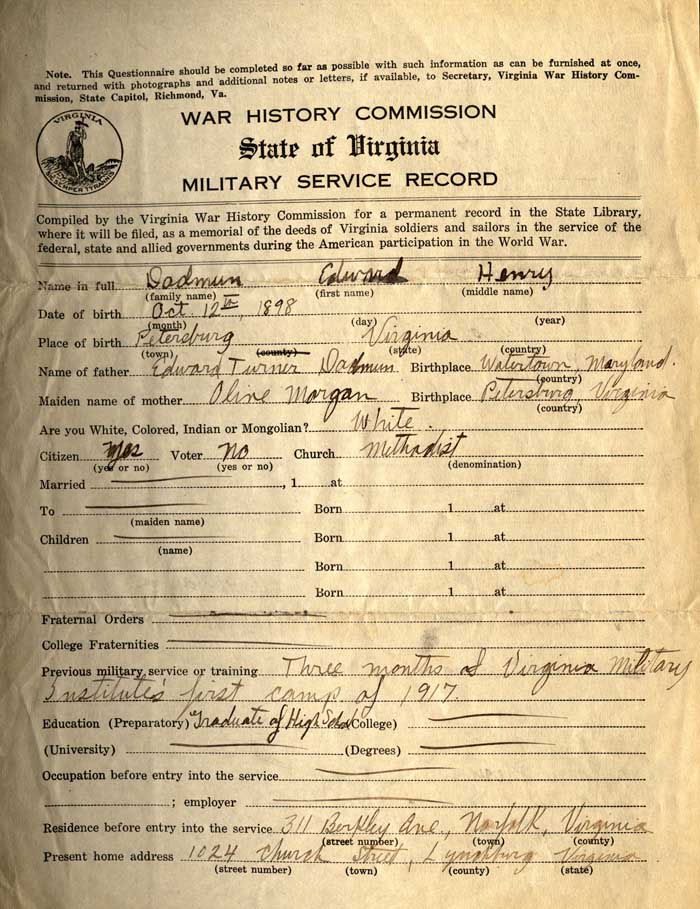 Note. This Questionnaire should be completed so far as possible with such information as can be furnished at once,
and returned with photographs and additional notes or letters, if available, to Secretary, Virginia War History Com-
mission, State Capitol, Richmond, Va.
VIRGINIA
SIC SEMPER TYRANNIS
WAR HISTORY COMMISSION
State of Virginia
MILITARY SERVICE RECORD
Compiled by the Virginia War History Commission for a permanent record in the State Library,
where it will be filed, as a memorial of the deeds of Virginia soldiers and sailors in the service of the
federal, state and allied governments during the American participation in the World War.
Name in full Dadmun Edward Henry
(family name) (first name) (middle name)
Date of birth Oct. 12th, 1898
(month) (day) (year)
Place of birth Petersburg Virginia
(town) (county) (state) (country)
Name of father Edward Turner Dadmun Birthplace Watertown, Maryland.
(country)
Maiden name of mother Oline Morgan Birthplace Petersburg, Virginia
(country)
Are you White, Colored, Indian or Mongolian? White.
Citizen Yes Voter No Church Methodist
(yes or no) (yes or no) (denomination)
Married , 1 at
To Born 1 at
(maiden name)
Children Born 1 at
(name)
Born 1 at
Born 1 at
Fraternal Orders
College Fraternities
Previous military service or training Three months of Virginia Military
Institute's first camp of 1917.
Education (Preparatory) Graduate of High School (College)
(University) (Degrees)
Occupation before entry into the service
; employer
Residence before entry into the service 311 Berkley Ave., Norfolk, Virginia
(street number) (town) (county)
Present home address 1024 Church Street, Lynchburg Virginia
(street number) (town) (county) (state)